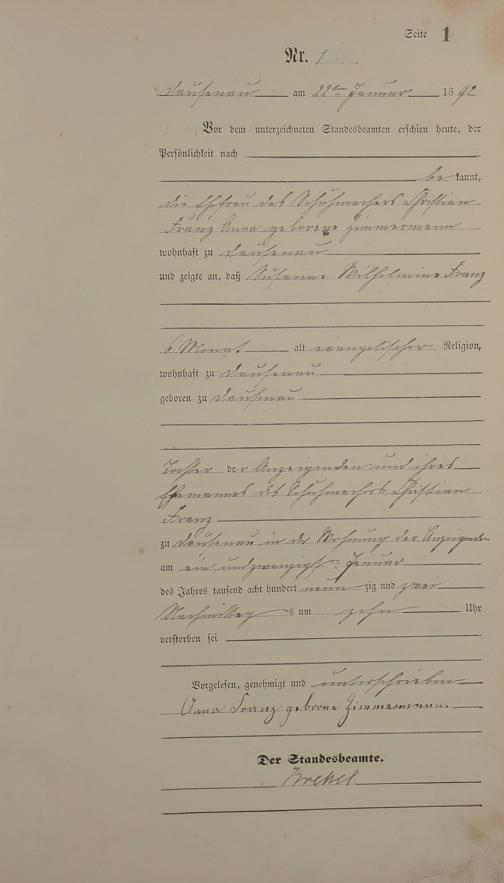 Seite 1
Nr. 1
Dausenau am 22ten Januar 1892
Vor dem unterzeichneten Standesbeamten erschien heute, der
Persönlichkeit nach
be kannt,
die Ehefrau des Schuhmachers Christian
Franz Anna geborene Zimmermann
wohnhaft zu Dausenau
und zeigte an, daß Susanne Wilhelmine Franz
6 Monat alt evangelischer Religion,
wohnhaft zu Dausenau
geboren zu Dausenau
Tochter der Anzeigenden und ihres
Ehemannes des Schuhmachers Christian
Franz
zu Dausenau in der Wohnung der Anzeigenden
am ein und zwanzigsten Januar
des Jahres tausend acht hundert neun zig und zwei
Nachmittag s um zehn Uhr
verstorben sei
Vorgelesen, genehmigt und unterschrieben
Anna Franz geborne Zimmermann.
Der Standesbeamte.